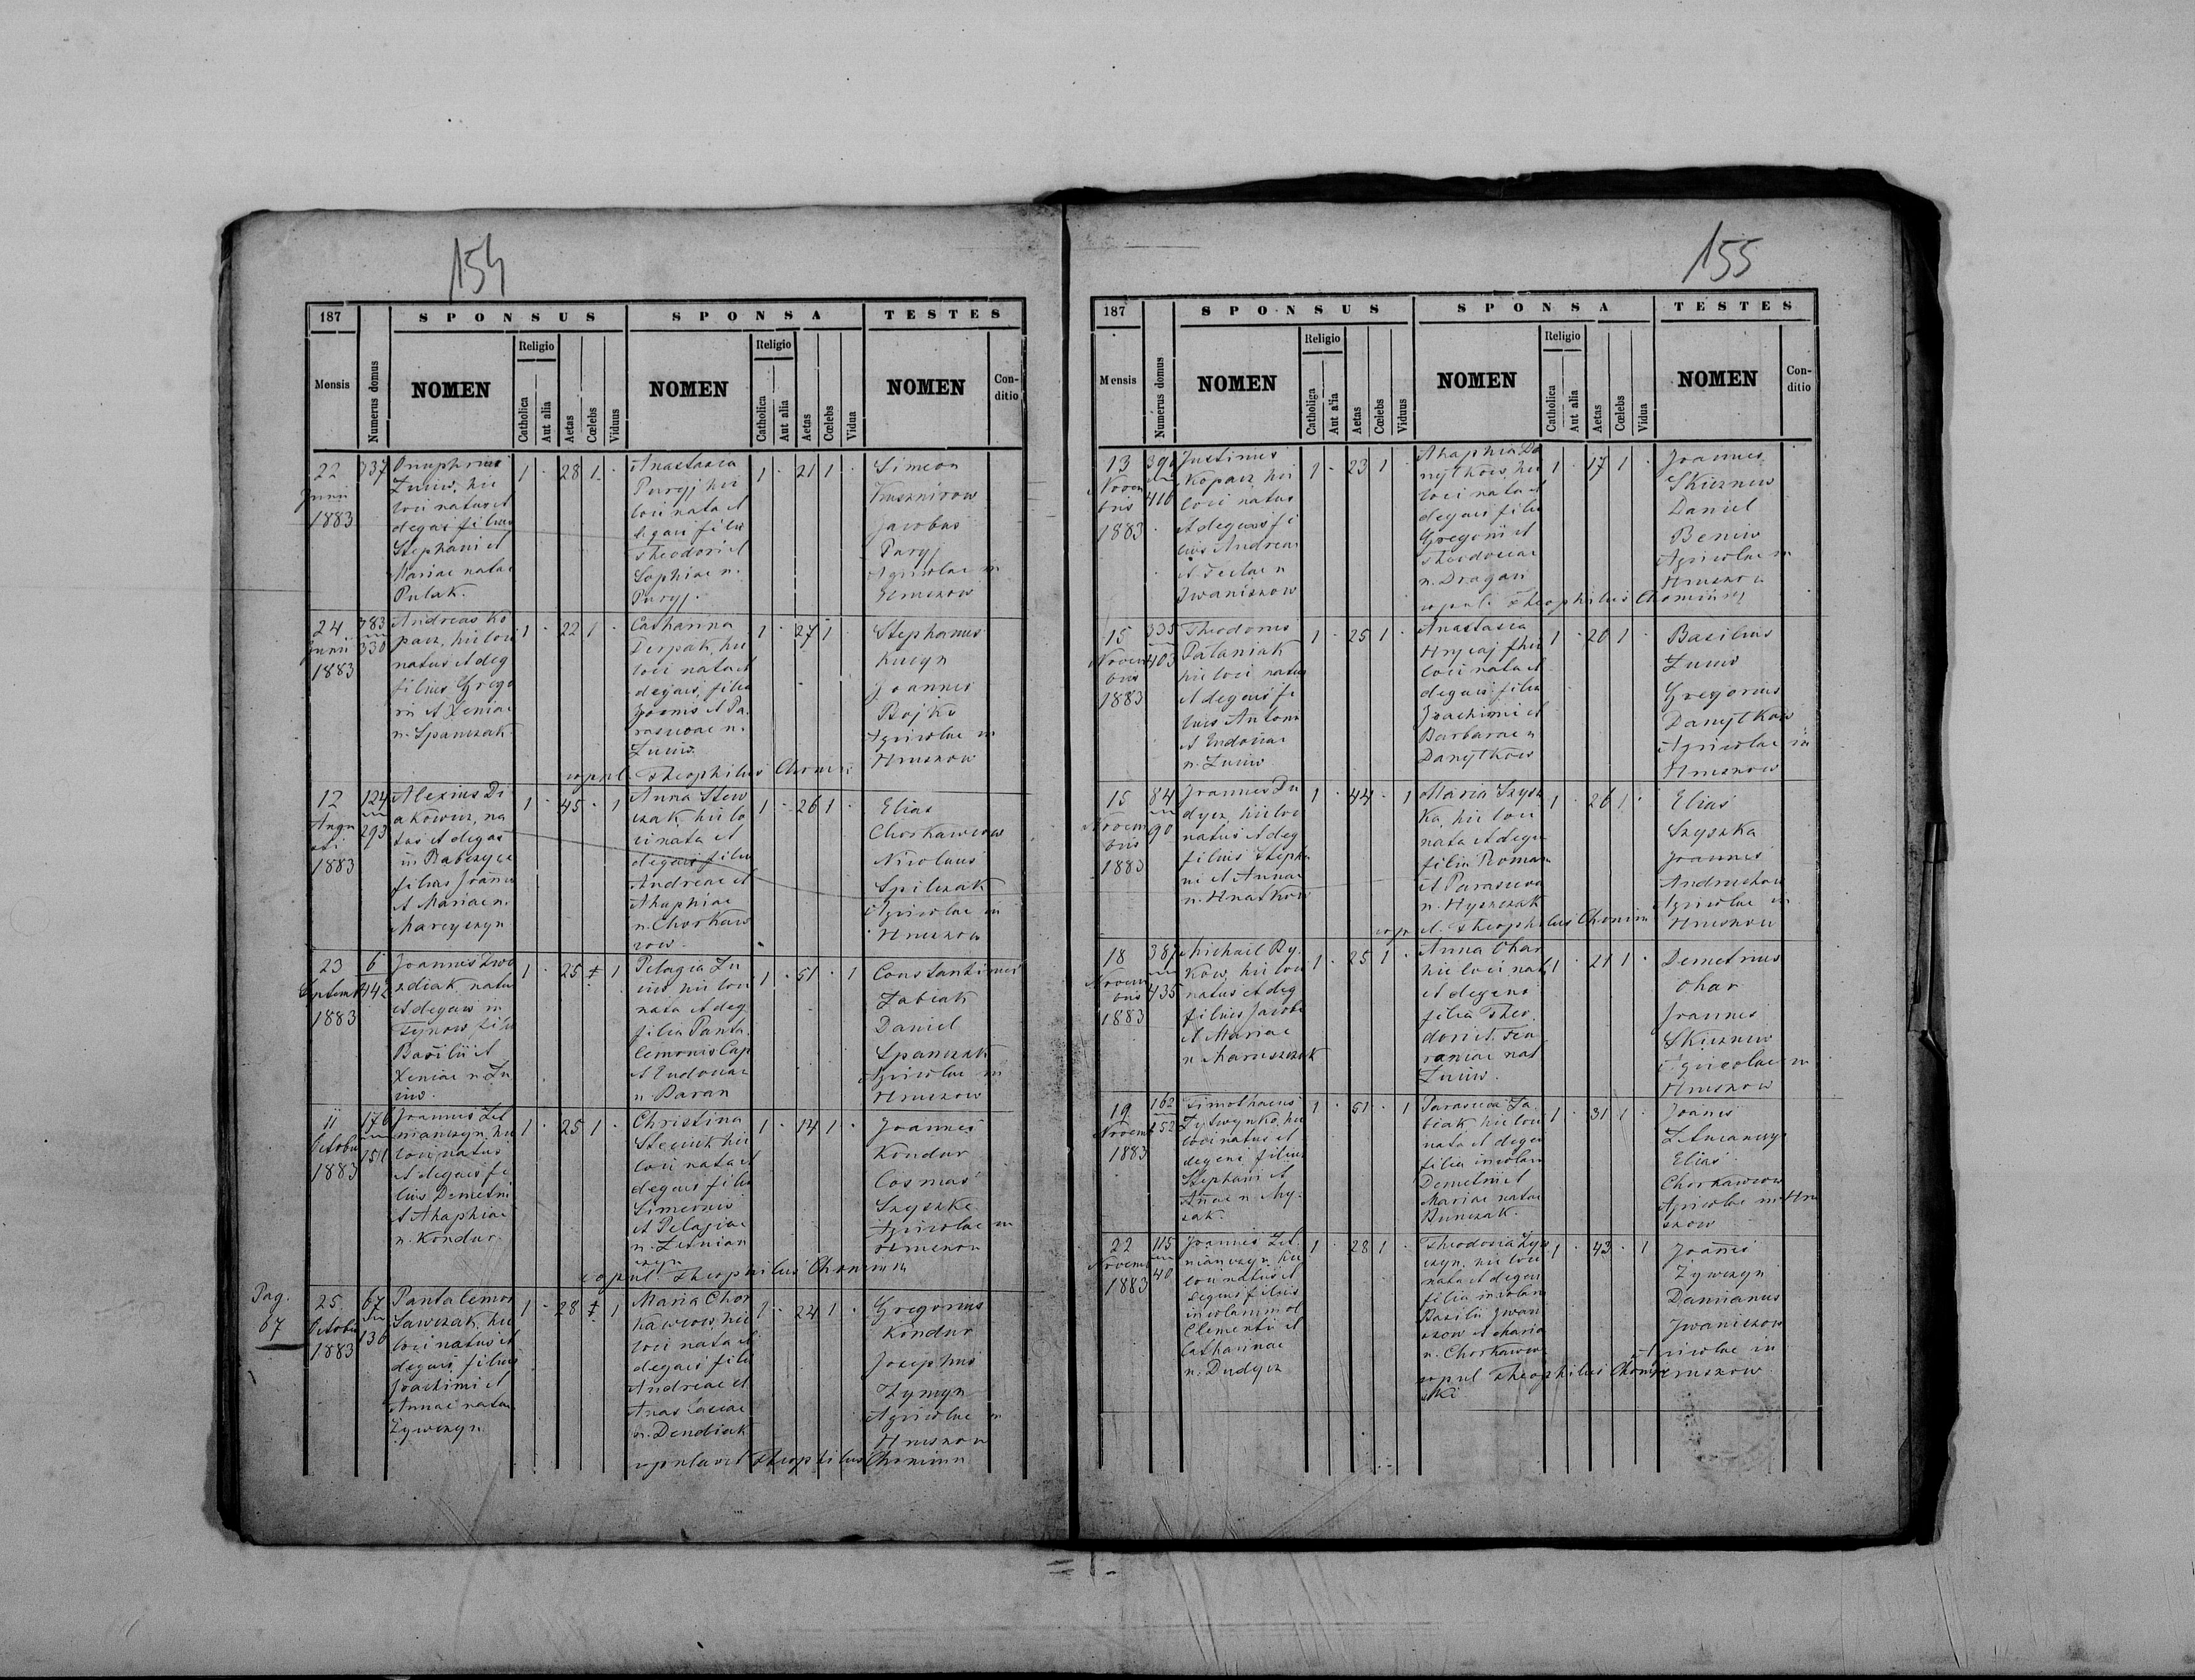 154
187
SPONSUS
SPONSA
TESTES
Mensis
Numerus domus
NOMEN
Religio
Catholica
Aut alia
Aetas
Cœlebs
Viduus
NOMEN
Religio
Catholica
Aut alia
Aetas
Cœlebs
Vidua
NOMEN
Con-
ditio
22
Junii
1883
337
Onuphrius
Zuiw, hic
loci natus et
degens filius
Stephani et
Mariae natae
Pulak.
1 - 28 1 -
Anastasia
Puryj hii
loci nata et
degens filia
Theodori et
Sophiae n.
Puryj.
1 - 21 1 -
Simeon
Kusznirow
Jacobus
Puryj
Agricolae in
Hruszow
24
Junii
1883
383
330
Andreas Ko
pacz, hii loci
natus et deg
filius Grego
rii et Xeniae
n. Spanczak
1 - 22 1 -
Catharina
Derpak, hii
loci nata et
degens, filia
Joannis et Pa.
rascevae n.
Zuiw.
1 - 27 1
Stephanus
Kucyn
Joannes
Bojko
Agricolae in
Hruszow
copul. Theophilus
12
Augu
sti
1883
124
293
Alexius Di
akowicz, na
tus et degens
in
filius Joannis
et Mariae n.
Marcyszyn
1 - 45 - 1
Anna Stew
czak, hii lo
ci nata et
degens filia
Andreae et
Ahaphiae
n. Chorkaw
cow.
1 - 26 1 -
Elias
Chorkawcow
Nicolaus
Spilczak
Agricolae in
Hruszow
23
Septemb
1883
6
442
Joannes
natus
et degens in
Tynow, filius
Basilii et
Xeniae n. Zu
iw.
1 - 25 1
Pelagia Zu
iw, hii loci
nata et deg
filia Panta.
lemonis Cap
et Eudociae
n. Baran
1 - 51 - 1
Constantinus
Zabiak
Daniel
Spanczak
Agricolae in
Hruszow
11
Octobr
1883
176
151
Joannes Let
nianczyn, hii
loci natus
et degens fi
lius Demetrii
et Ahaphiae
n. Kondur.
1 - 25 1 -
Christina
Steciuk hii
loci nata et
degens filia
Simeonis
et Pelagiae
n. Letnian
czyn
1 - 14 1 -
Joannes
Kondur
Cosmas
Szyszka
Agricolae in
Hruszow
copul. Theophilus
Pag.
67
25
Octobr
1883
67
136
Pantalemon
Sawczak, hii
loci natus et
degens, filius
Joachimi et
Annae natae
Zywczyn
1 - 28 1
Maria Chor
kawcow, hii
loci nata et
degens filia
Andreae et
Anastasiae
n. Dendiak
1 - 24 1 -
Gregorius
Kondur
Josephus
Zymyn
Agricolae in
Hruszow
copulavit Theophilus
155
187
SPONSUS
SPONSA
TESTES
Mensis
Numerus domus
NOMEN
Religio
Catholica
Aut alia
Aetas
Cœlebs
Viduus
NOMEN
Religio
Catholica
Aut alia
Aetas
Cœlebs
Vidua
NOMEN
Con-
ditio
13
Novem
bris
1883
416
Justinus
Kopacz, hii
loci natus
et degens fi
lius Andreae
et Teclae n
Iwaniszow
1 - 23 1 -
Ahaphia Da
nylkow, hii
loci nata et
degens filia
Gregorii et
Theodosiae
n. Dragan
1 - 17 1 -
Joannes
Skicznew
Daniel
Beniw
Agricolae in
Hruszow
copul. Theophilus
15
Novem
bris
1883
335
403
Theodorus
Pataniak
hii loci natus
et degens fi
lius Antonii
et Eudociae
n. Zuiw
1 - 25 1 -
Anastasia
Hrycaj, hii
loci nata et
degens filia
Joachimi et
Barbarae n
Danylkow
1 - 20 1 -
Basilius
Zuiw
Gregorius
Danylkow
Agricolae in
Hruszow
15
Novem
bris
1883
84
90
Joannes Du
dycz, hii loci
natus et deg
filius Stepha
ni et Annae
n. Hnatkow
1 - 44 - 1
Maria Szysz
ka, hii loci
nata et degen
filia Roman
et Parasceva
n. Hyszczak
1 - 26 1 -
Elias
Szyszka
Joannes
Andruchow
Agricolae in
Hruszow
cop. et Theophilus
18
Novem
bris
1883
387
435
Michael By.
kow, hii loci
natus et deg
filius Jacobi
et Mariae
n. Maruszczak
1 - 25 1 -
Anna Ohar
hii loci nata
et degens
filia Theo
dori et Feu
roniae nat
Zuiw.
1 - 21 1 -
Demetrius
Ohar
Joannes
Skicznew
Agricolae in
Hruszow
19
Novem
1883
162
152
Timothaeus
Tytwynko, hii
loci natus et
degens filius
Stephani et
Annae n.
1 - 51 - 1
Parasceva Za
biak hii loci
nata et degen
filia
Demetrii et
Mariae natae
Bunczak.
1 - 31 1 -
Joannes
Elias
Chorkawcow
Agricolae in Hru
szow
22
Novem
1883
115
40
Joannes Let
nianczyn, hii
loci natus et
degens filius
Clementis et
Catharinae
n. Dudycz
1 - 28 1 -
Theodosia Zyw
czyn, hii loci
nata et degen
filia
Basilii Iwani
szow et Maria
n. Chorkawcow
1 - 43 - 1
Joannes
Zywczyn
Damianus
Iwaniszow
Agricolae in
Hruszow
copul Theophilus